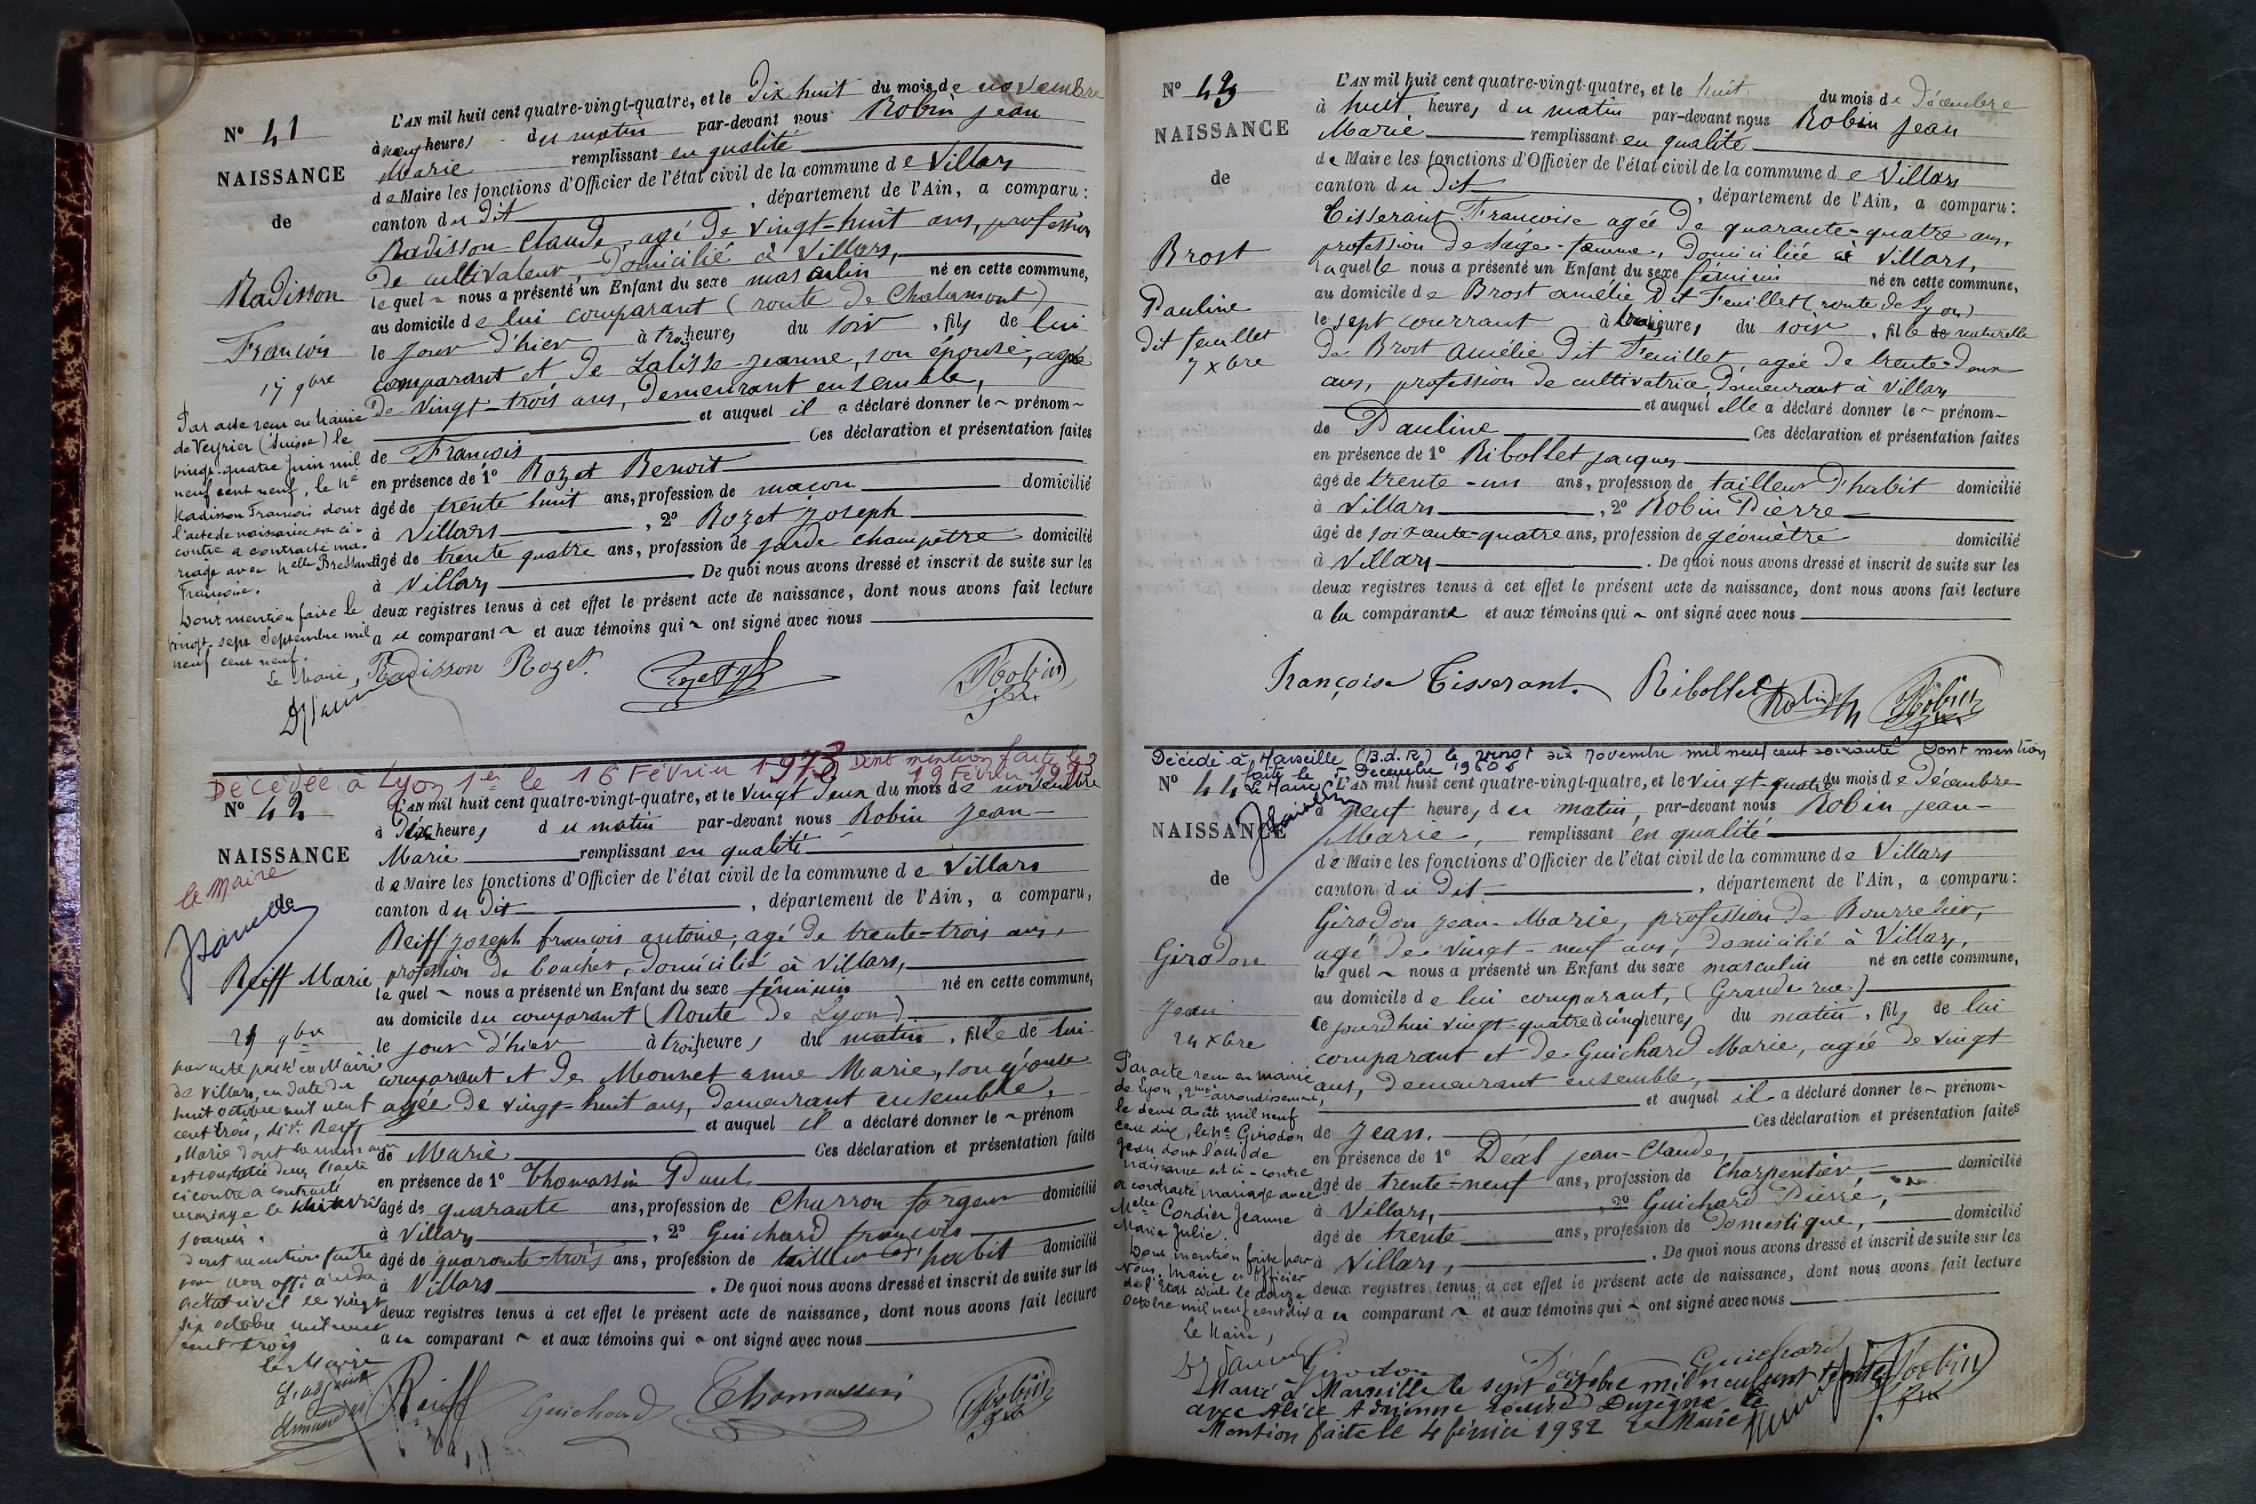 N° 41
NAISSANCE
de
Radisson
François
17 9bre
Par acte reçu en mairie
de Veyrier (Suisse) le
vingt-quatre Juin mil
neuf cent neuf, le né
Radisson François dont
l'acte de naissance est ci-
contre a contracté ma-
riage avec elle
Françoise.
Pour mention faite le
vingt-sept Septembre mil
neuf cent neuf.
Le Maire,
L'AN mil huit cent quatre-vingt-quatre, et le Dix huit du mois de novembre
à neuf heures du matin par-devant nous Robin Jean
Marie remplissant en qualité
de Maire les fonctions d'Officier de l'état civil de la commune de Villars
canton du Dit, département de l'Ain, a comparu:
Radisson Claude, agé de vingt-huit ans, profession
de cultivateur, domicilié à Villars,
lequel ~ nous a présenté un Enfant du sexe masculin né en cette commune,
au domicile de lui comparant (route de Chalamont)
le jour d'hier à trois heures du soir, fils de lui
comparant et de Jeanne, son épouse, agée
de vingt-trois ans, demeurant ensemble,
et auquel il a déclaré donner le ~ prénom ~
de François Ces déclaration et présentation faites
en présence de 1° Rozet Benoit
âgé de trente huit ans, profession de maçon domicilié
à Villars, 2° Rozet Joseph
âgé de trente quatre ans, profession de garde champêtre domicilié
à Villars. De quoi nous avons dressé et inscrit de suite sur les
deux registres tenus à cet effet le présent acte de naissance, dont nous avons fait lecture
au comparant ~ et aux témoins qui ~ ont signé avec nous
Radisson Rozet Rozet Robin
Décédée à Lyon 1er le 16 Février 1973 Dont mention faite le
19 Février
N° 42
NAISSANCE
le Maire
de
Reiff Marie
21 9bre
par acte passé en Mairie
de Villars, en date du
huit octobre mil neuf
cent trois, Reiff
Marie dont la naissance
est constatée dans l'acte
ci contre a contracté
mariage
dont mention faite
par nous
état civil le vingt
six octobre mil neuf
cent trois
le Maire
L'AN mil huit cent quatre-vingt-quatre, et le vingt deux du mois de novembre
à Dix heures du matin par-devant nous Robin Jean
Marie remplissant en qualité
de Maire les fonctions d'Officier de l'état civil de la commune de Villars
canton du Dit, département de l'Ain, a comparu,
Reiff Joseph françois antoine, agé de trente-trois ans,
profession de boucher, domicilié à Villars,
lequel ~ nous a présenté un Enfant du sexe féminin né en cette commune,
au domicile du comparant (Route de Lyon)
le jour d'hier à trois heures du matin, fille de lui
comparant et de Monnet anne Marie, son épouse
agée de vingt-huit ans, demeurant ensemble,
et auquel il a déclaré donner le ~ prénom
de Marie Ces déclaration et présentation faites
en présence de 1° Thomassin Paul
âgé de quarante ans, profession de Charron forgeur domicilié
à Villars, 2° Guichard françois
âgé de quarante-trois ans, profession de tailleur d'habit domicilié
à Villars. De quoi nous avons dressé et inscrit de suite sur les
deux registres tenus à cet effet le présent acte de naissance, dont nous avons fait lecture
au comparant ~ et aux témoins qui ~ ont signé avec nous
Reiff Guichard Thomassin Robin
N° 43
NAISSANCE
de
Brost
Pauline
dit feuillet
7 xbre
L'AN mil huit cent quatre-vingt-quatre, et le huit du mois de Décembre
à huit heures du matin par-devant nous Robin Jean
Marie remplissant en qualité
de Maire les fonctions d'Officier de l'état civil de la commune de Villars
canton du Dit, département de l'Ain, a comparu:
Tisserant Françoise agée de quarante-quatre ans,
profession de sage-femme, domiciliée à Villars,
laquelle nous a présenté un Enfant du sexe féminin né en cette commune,
au domicile de Brost amélie dit Feuillet (route de Lyon)
le sept courrant à trois heures du soir, fille de naturelle
de Brost Amélie dit Feuillet, agée de trente-deux
ans, profession de cultivatrice demeurant à Villars
et auquel elle a déclaré donner le ~ prénom ~
de Pauline Ces déclaration et présentation faites
en présence de 1° Ribollet Jacques
âgé de trente-un ans, profession de tailleur d'habit domicilié
à Villars, 2° Robin Pierre
âgé de soixante-quatre ans, profession de géomètre domicilié
à Villars. De quoi nous avons dressé et inscrit de suite sur les
deux registres tenus à cet effet le présent acte de naissance, dont nous avons fait lecture
a la comparante et aux témoins qui ~ ont signé avec nous
Françoise Tisserant. Ribollet Robin Robin
Décédé à Marseille (B.d.R) le vingt six novembre mil neuf cent soixante Dont mention
faite le 5 Décembre 1960
Le Maire
N° 44
NAISSANCE
de
Girodon
Jean
24 xbre
Par acte reçu en mairie
de Lyon, 2me arrondissement,
le deux Août mil neuf
cent dix, le né Girodon
Jean dont l'acte de
naissance est ci-contre
a contracté mariage avec
Melle Cordier Jeanne
Marie Julie.
Pour mention faite par
Nous, Maire et Officier
de l'Etat civil le douze
Octobre mil neuf cent dix
Le Maire,
L'AN mil huit cent quatre-vingt-quatre, et le vingt-quatre du mois de Décembre
à neuf heures du matin, par-devant nous Robin Jean-
Marie, remplissant en qualité
de Maire les fonctions d'Officier de l'état civil de la commune de Villars
canton du Dit, département de l'Ain, a comparu:
Girodon Jean-Marie, profession de Bourrelier,
agé de vingt-neuf ans, domicilié à Villars,
lequel ~ nous a présenté un Enfant du sexe masculin né en cette commune,
au domicile de lui comparant, (Grande rue)
ce jourd'hui vingt-quatre à cinq heures du matin, fils de lui
comparant et de Guichard Marie, agée de vingt
ans, demeurant ensemble,
et auquel il a déclaré donner le ~ prénom ~
de Jean. Ces déclaration et présentation faites
en présence de 1° Déal Jean-Claude,
âgé de trente-neuf ans, profession de Charpentier domicilié
à Villars, 2° Guichard Pierre,
âgé de trente ans, profession de Domestique, domicilié
à Villars,. De quoi nous avons dressé et inscrit de suite sur les
deux registres tenus à cet effet le présent acte de naissance, dont nous avons fait lecture
au comparant ~ et aux témoins qui ~ ont signé avec nous
Girodon Déal Guichard Robin
Marié à Marseille le sept octobre mil neuf cent trente
avec Alice Adrienne Louise
Mention faite le 4 février 1932 Le Maire